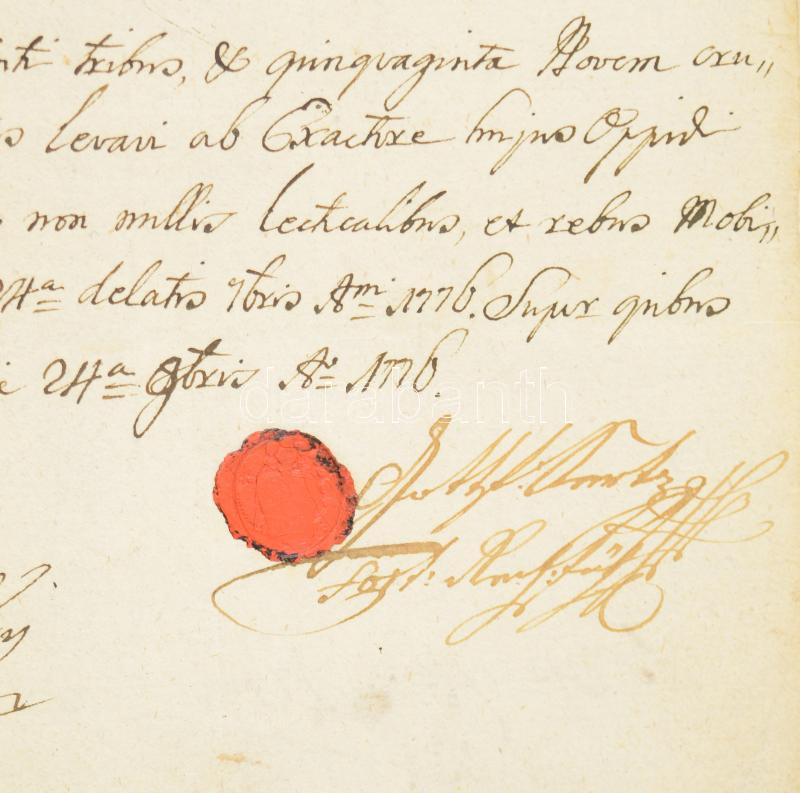 tribus, & quinquaginta Novem cru„
levari ab Exactore hujus Oppidi
non nullis lecticalibus, et rebus Mobi„
24ª delatis 7bris Aⁿⁱ 1776. Super quibus
24ª 8bris Aº 1776.
darabanth